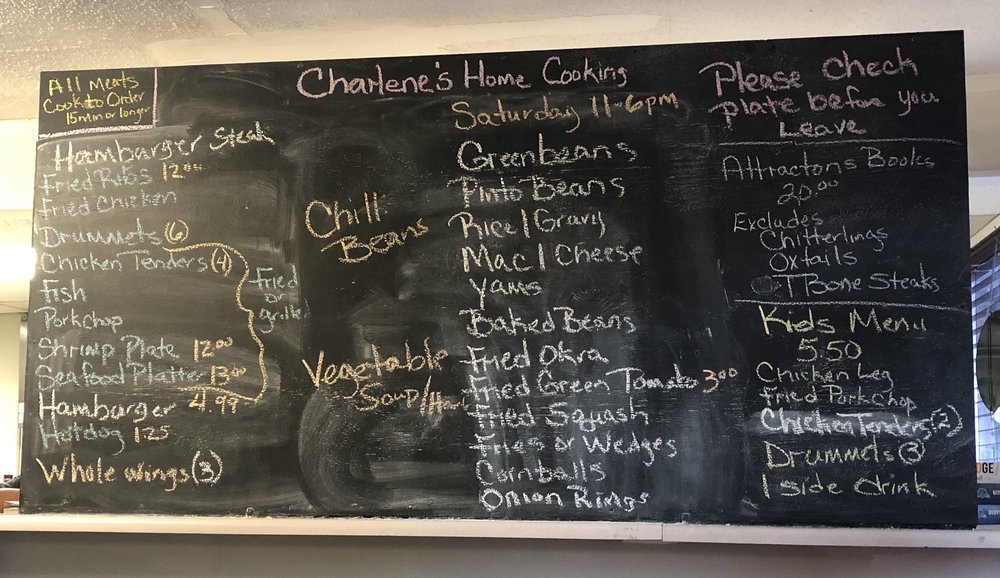 All Meats
Cook to Order
15 min or longer
Charlene's Home Cooking
Saturday 11-6pm
Please Check
plate before you
Leave
Hamburger Steak
Fried Ribs 12.00
Fried Chicken
Drummets (6)
Chicken Tenders (4)
Fish
Porkchop
Shrimp Plate 12.00
Seafood Platter 13.00
Hamburger 4.99
Hotdog 1.25
Whole wings (3)
Fried
or
grilled
Chill
Beans
Vegetable
Soup/
Greenbeans
Pinto Beans
Rice/Gravy
Mac/Cheese
Yams
Baked Beans
Fried Okra
Fried Green Tomato 3.00
Fried Squash
Fries or Wedges
Cornballs
Onion Rings
Attractons Books
20.00
Excludes
Chitterlings
Oxtails
TBone Steaks
Kids Menu
5.50
Chicken Leg
Fried Porkchop
Chicken Tenders (2)
Drummets (3)
1 side drink